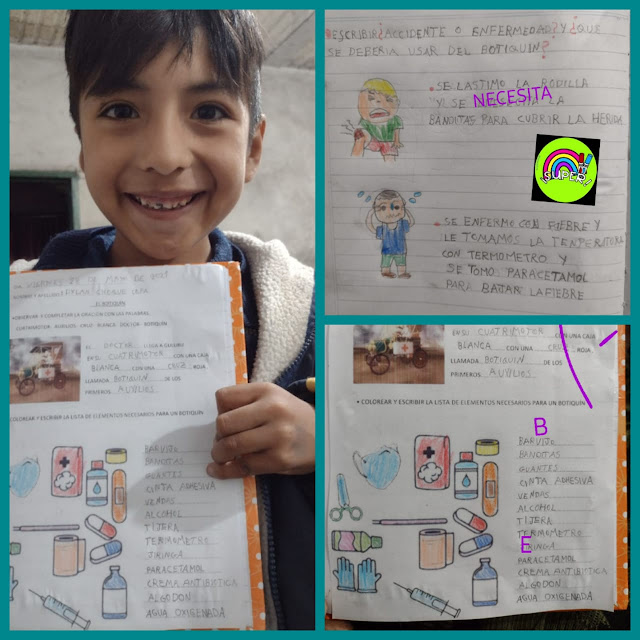 VIERNES
• OBSERVAR Y COMPLETAR LA ORACIÓN CON LAS PALABRAS:
CUATRIMOTOR AUXILIOS CRUZ BLANCA DOCTOR BOTIQUÍN
EL DOCTOR LLEGA A
EN SU CUATRIMOTER CON UNA CAJA
BLANCA CON UNA CRUZ ROJA,
LLAMADA BOTIQUIN DE LOS
PRIMEROS AUXILIOS.
COLOREAR Y ESCRIBIR LA LISTA DE ELEMENTOS NECESARIOS PARA UN BOTIQUÍN
BARVIJO
BANDITAS
GUANTES
CINTA ADHESIVA
VENDAS
ALCOHOL
TIJERA
TERMOMETRO
JRINGA
PARACETAMOL
CREMA ANTIBIOTICA
ALGODON
AGUA OXIGENADA
ESCRIBIR ¿ACCIDENTE O ENFERMEDAD? Y ¿QUE
SE DEBERIA USAR DEL BOTIQUIN?
• SE LASTIMO LA RODILLA
Y SE NECESITA LA
BANDITAS PARA CUBRIR LA HERIDA
¡SUPER!
• SE ENFERMO CON FIEBRE Y
LE TOMAMOS LA TENPERATURA
CON TERMOMETRO Y
SE TOMO PARACETAMOL
PARA BAJAR LA FIEBRE
EN SU CUATRIMOTER CON UNA CAJA
BLANCA CON UNA CRUZ ROJA,
LLAMADA BOTIQUIN DE LOS
PRIMEROS AUXILIOS.
• COLOREAR Y ESCRIBIR LA LISTA DE ELEMENTOS NECESARIOS PARA UN BOTIQUÍN
B
BARVIJO
BANDITAS
GUANTES
CINTA ADHESIVA
VENDAS
ALCOHOL
TIJERA
TERMOMETRO
E
JRINGA
PARACETAMOL
CREMA ANTIBIOTICA
ALGODON
AGUA OXIGENADA